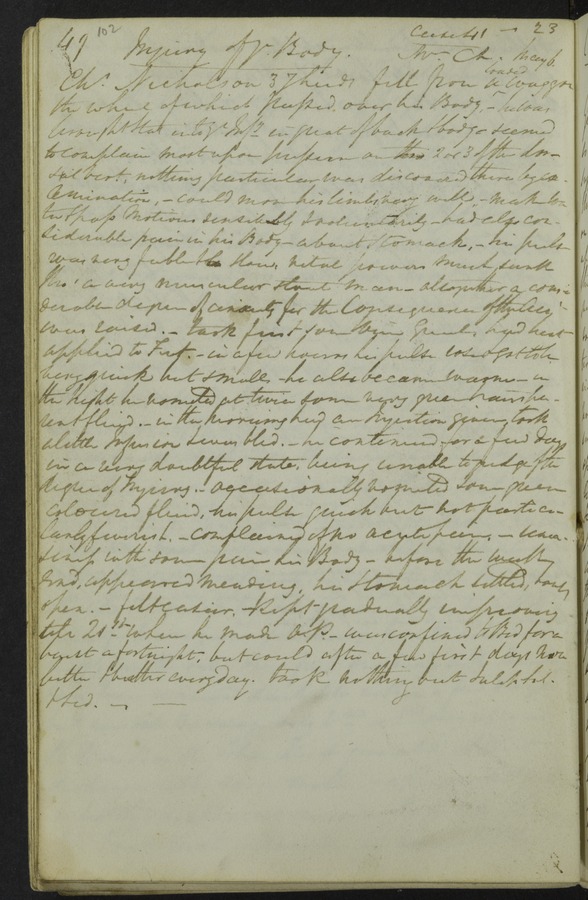 49 102 Injury of ye. Body. Cured 41 — 23
Mr Ch. May 6
loaded
Chs. Nicholson 37 fell from a Waggon
the wheel of which passed over his Body, - he was
brought into ye Infy. in great of back & body - seemed
to complain most upon pressure on the 2 or 3 of the dor-
sal vert. nothing particular was discovered there by ex-
amination, - could move his limbs very well, - make
two motions sensibly & voluntarily - had also con-
siderable pain in his Body - about Stomach, - his pulse
was very feeble slow, vital powers much sunk
tho' a very muscular stout man - altogether a con-
derable degree of anxiety for the Consequences of the
was raised. - took first some & heat
applied to Feet. - in a few hours his pulse got
very quick but small - he also became warm - in
the night he vomited at twice some very green transpa-
rent fluid. - in the morning had an Injection given, took
a little Infusion was bled. - he continued for a few days
in a very doubtful state, being unable to judge of the
degree of Injury. - occasionally vomited some green
coloured fluid, his pulse quick but not particu-
larly feverish. - complained of no acute pain, -
with some pain in his Body - before the week
End, appeared mending, his Stomach settled, bowels
open. - felt easier. - kept gradually improving
till 21st when he made O.P. - was confined to Bed for a
bout a fortnight, but could after a few first days move
better & better every day. took nothing but
& bled. —